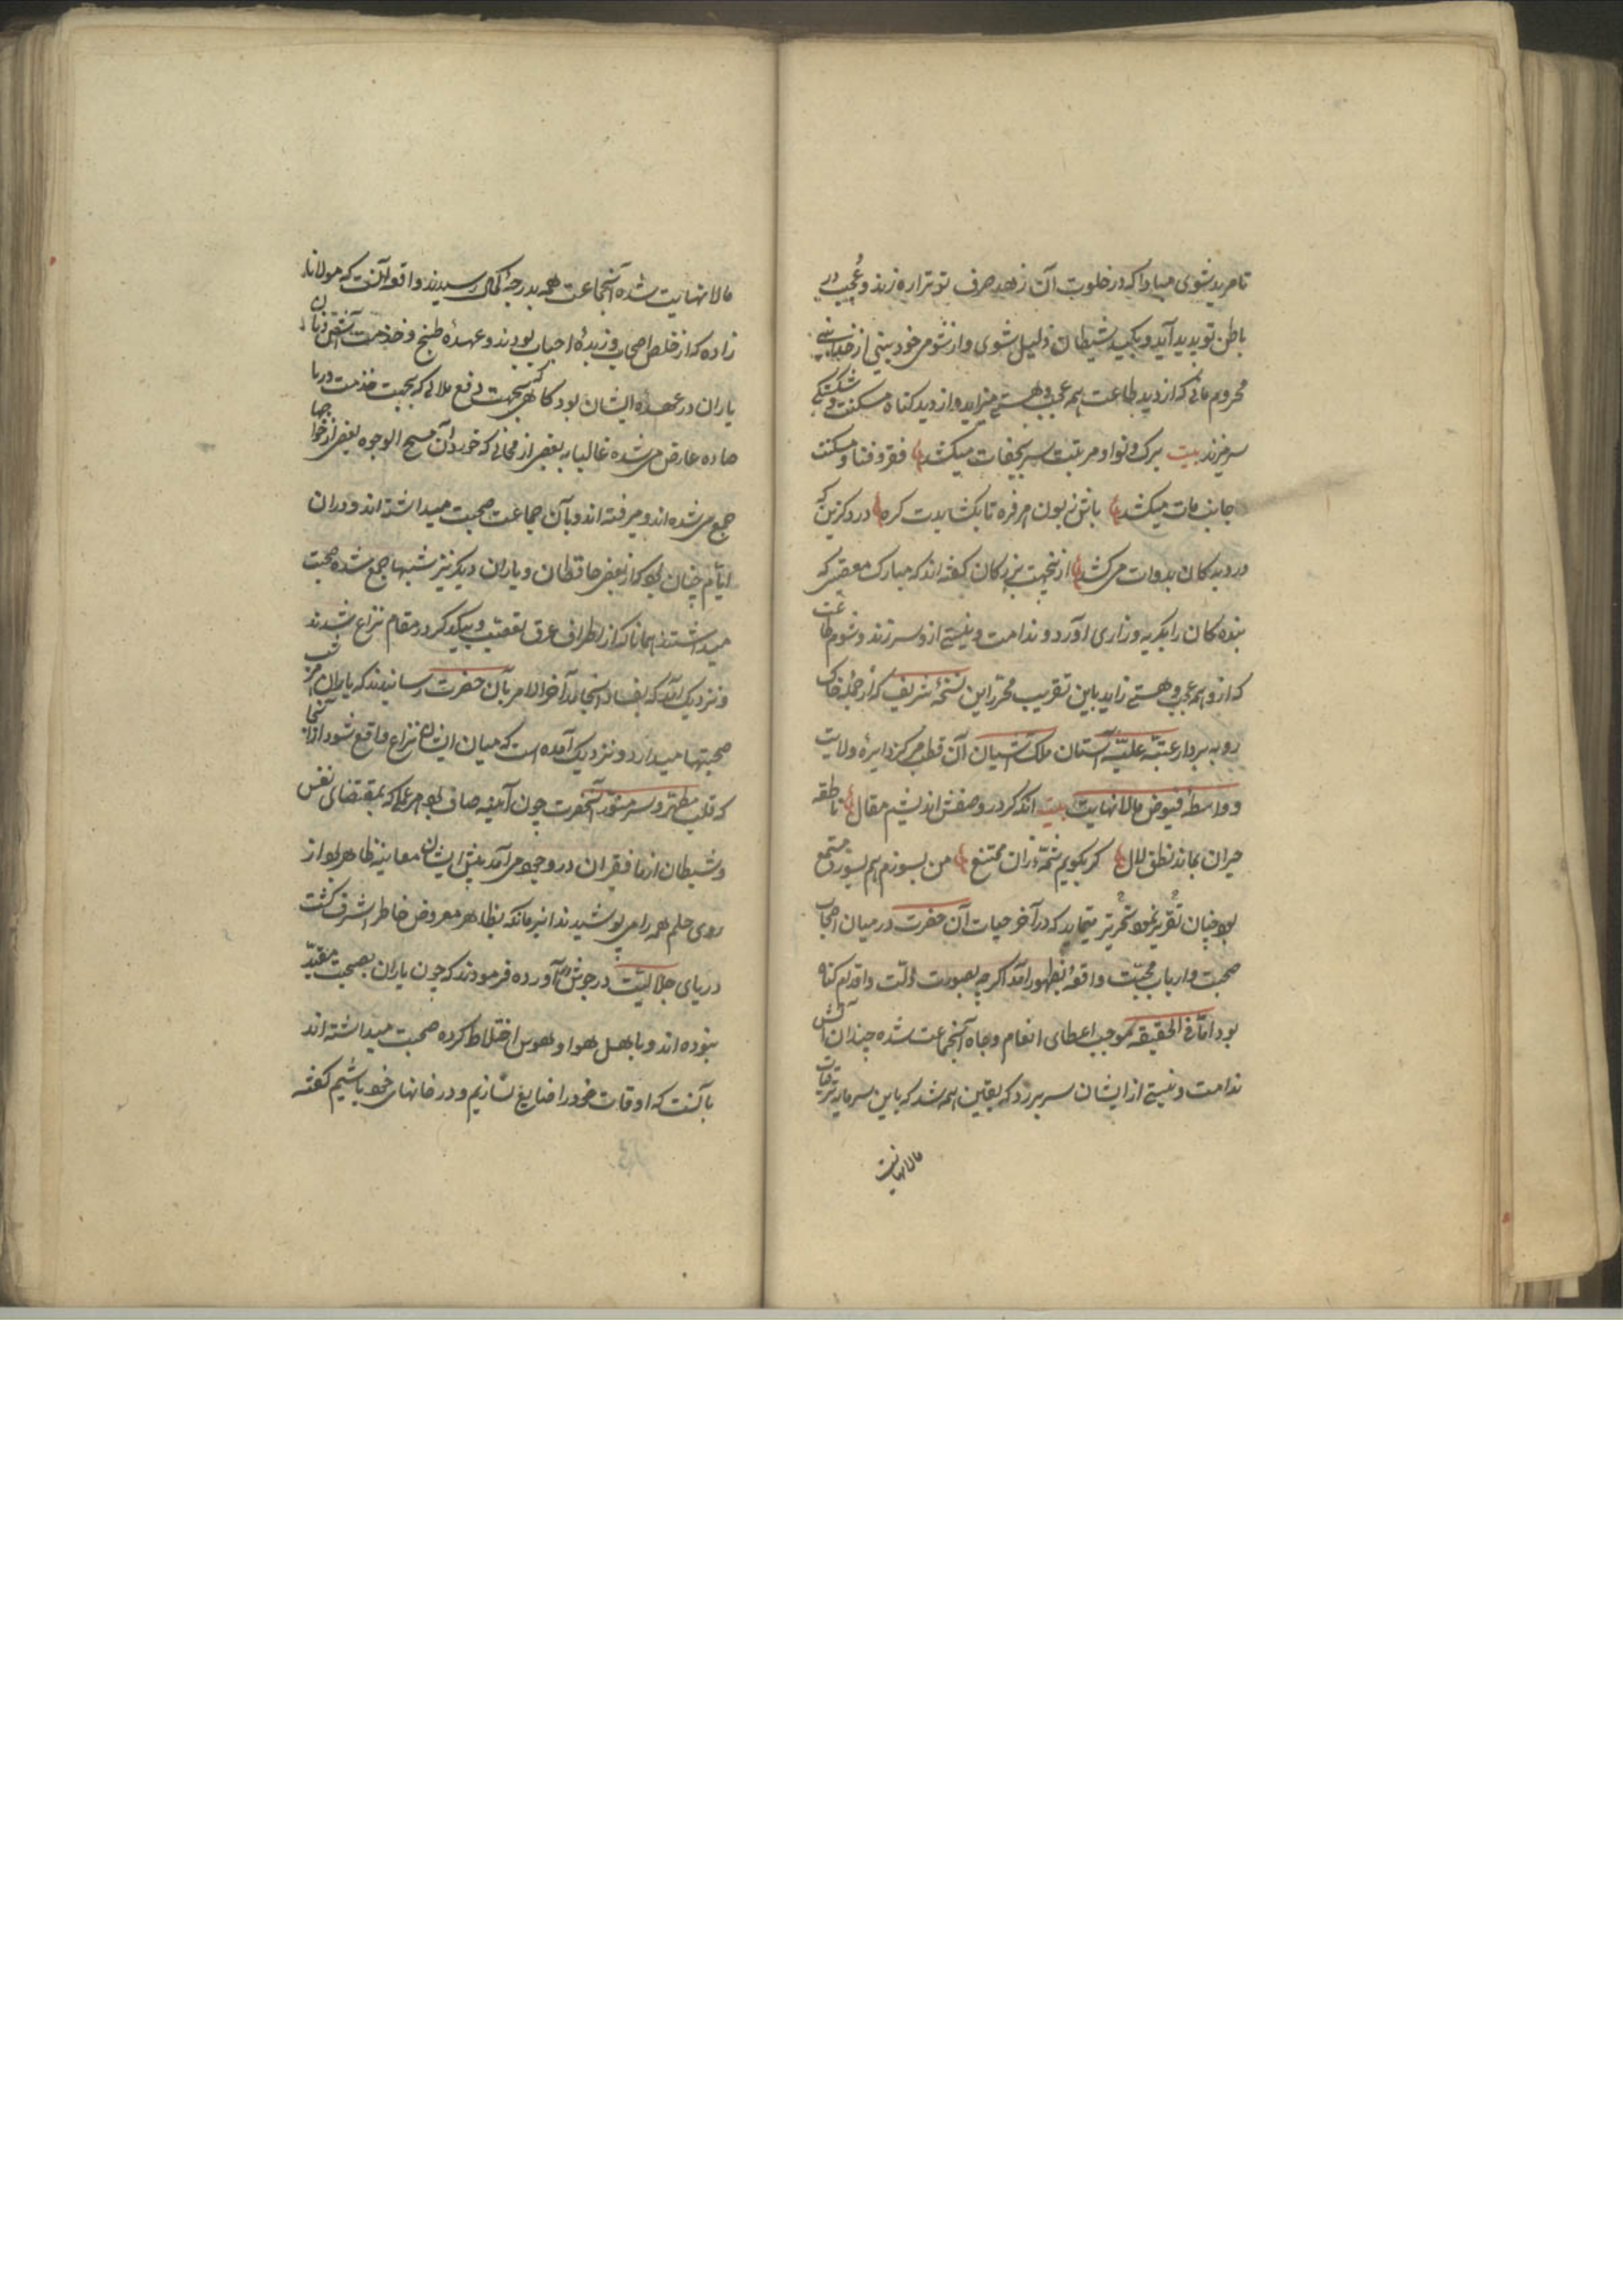 تا مرید شوی مبادا که در خلوت آن زهد صرف تو ترا ره زند و عجب در
باطن تو پدید آید و بکید شیطان ذلیل شوی و از شومی خود بینی از خداشناسی
محروم مانی که از دید طاعت همه عجب و هستی میزاید و از دید کناه مسکنت و شکستکی
سر میزند بیت برک و نوا و مرتبت سر بجفات میکشد فقر و فنا و مسکنت
جانب مات میکشد باش زبون امر فره تا بکشایدت کره در دکزین که
درد بدکان بدوات می کشد ازینجهت بزرکان کفته اند که مبارک معصیتی که
بنده کان را بکریه و زاری آورد و ندامت و نیستی ازو سر زند و شوم طاعت
که ازو همه عجب و هستی زاید باین تقریب محرر این نسخه شریف که از جمله خاک
روبه بردار عتبه علیه آستان ملک آشیان آن قطب مرکز دایره ولایت
و واسطه فیوض مالانهایت بیت آنکه کر در وصفش اندیشم مقال ناطقه
حیران بماند نطق لال کر بکویم شمه زان ممتنع من بسوزم هم بسوزد مستمع
بود چنان تقریر نموده تحریر مینماید که در آخر حیات آن حضرت در میان اصحاب
صحبت و ارباب محبت واقعه بظهور آمد اکرچه بصورت ذلت و اقدام کناه
بود اما فی الحقیقه موجب اعطای انعام و جاه آنجماعت شده چندان آتش
ندامت و نیستی از ایشان سر بر زد که یقین همه شد که باین سرمایه ترقیات
مالانهایت
مالانهایت شده آنجماعت همه بدرجه کمال رسیدند و اقعه آنست که مولانا
زاده که از خلص اصحاب و زبده احباب بودند و عهده طبخ و خدمت آتش و نان
یاران در عهده ایشان بود کاهی بجهت دفع ملالی که بجهت خدمت
عارض می شده غالبا به بعضی از محلی که خوردن آن مسیح الوجوه بعضی از خواجها
جمع می شده اند و میرفته اند و با آن جماعت صحبت میداشته اند و در آن
ایام چنان بود که از بعضی حافظان و یاران دیکر نیز شبها جمع شده صحبت
میداشتند همانا که از اطراف عرق تعصب و بیکدیکر در مقام نزاع شدند
و نزدیک آمد که بفساد انجامد آخر الامر بآن حضرت رسانیدند که یاران امر شب
صحبتها میدارد و نزدیک آمده است که میان ایشان نزاع واقع شود از آنجا
که قلب مطهر و سر منور آنحضرت چون آیینه صاف بود هر عملی که بمقتضای نفس
و شیطان ازما فقیران در وجود می آمد پیش ایشان معاینه ظاهر بود از
روی حلم همه را می پوشیدند اینرمانکه بظاهر معروض خاطر اشرف کشت
دریای جلالیت در جوش آورده فرمودند که چون یاران بصحبت مقید
نبوده اند و باهل هوا و هوس اختلاط کرده صحبت میداشته اند
بآنست که اوقات خود را ضایع نسازیم و در خانهای خود باشیم کفته